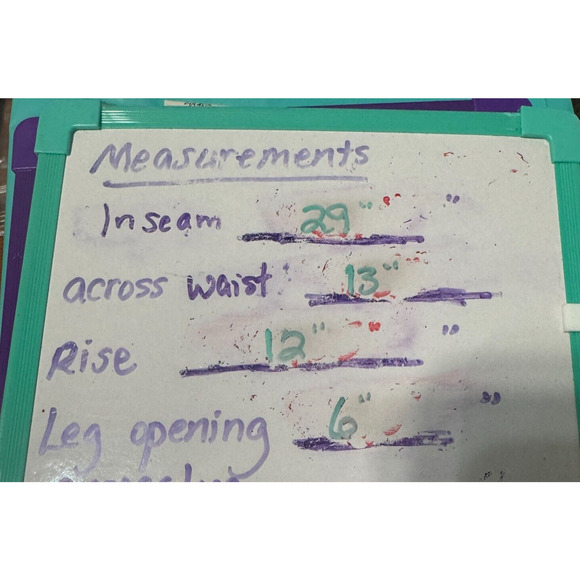 Measurements
Inseam 29" "
across waist: 13"
Rise 12" "
Leg opening 6" "